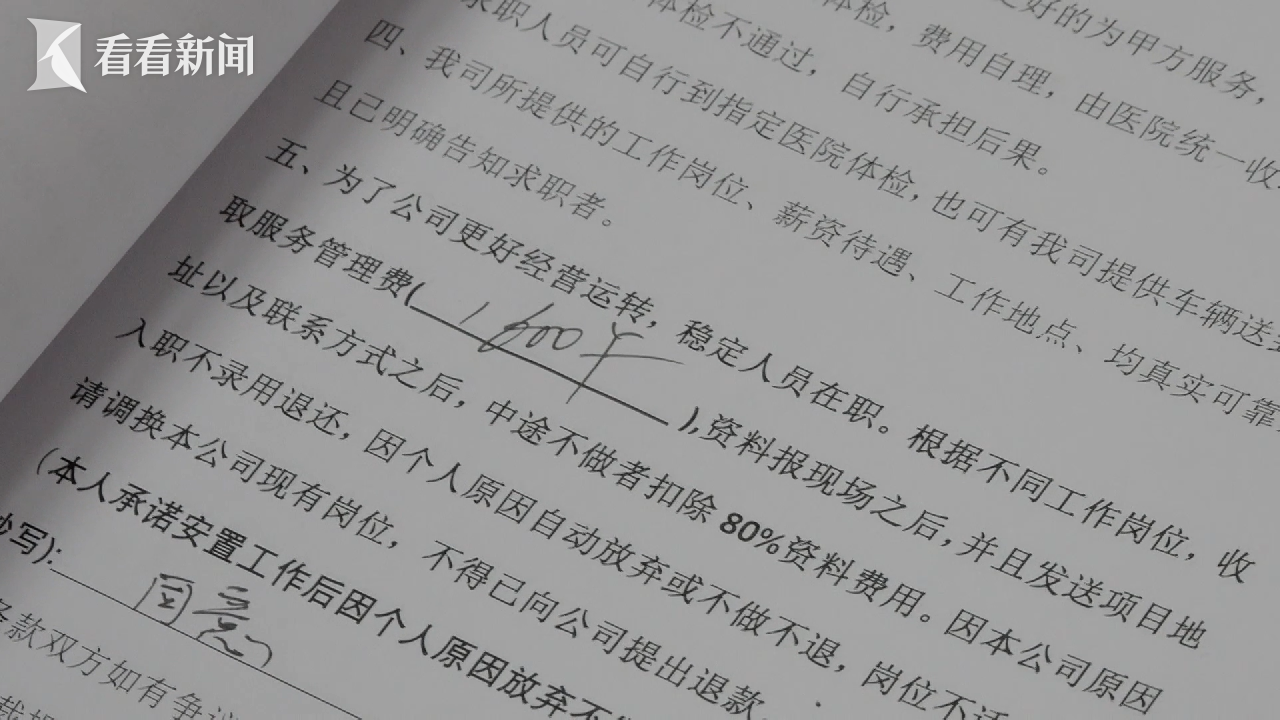 看看新闻
更好的为甲方服务，
体检，费用自理，由医院统一收
体检不通过，自行承担后果。
求职人员可自行到指定医院体检，也可有我司提供车辆送
四、我司所提供的工作岗位、薪资待遇、工作地点、均真实可靠
且已明确告知求职者。
五、为了公司更好经营运转，稳定人员在职。根据不同工作岗位，收
取服务管理费(1600),资料报现场之后,并且发送项目地
址以及联系方式之后，中途不做者扣除80%资料费用。因本公司原因
入职不录用退还，因个人原因自动放弃或不做不退，岗位不适
请调换本公司现有岗位，不得已向公司提出退款
(本人承诺安置工作后因个人原因放弃不
抄写):同意
条款双方如有争议